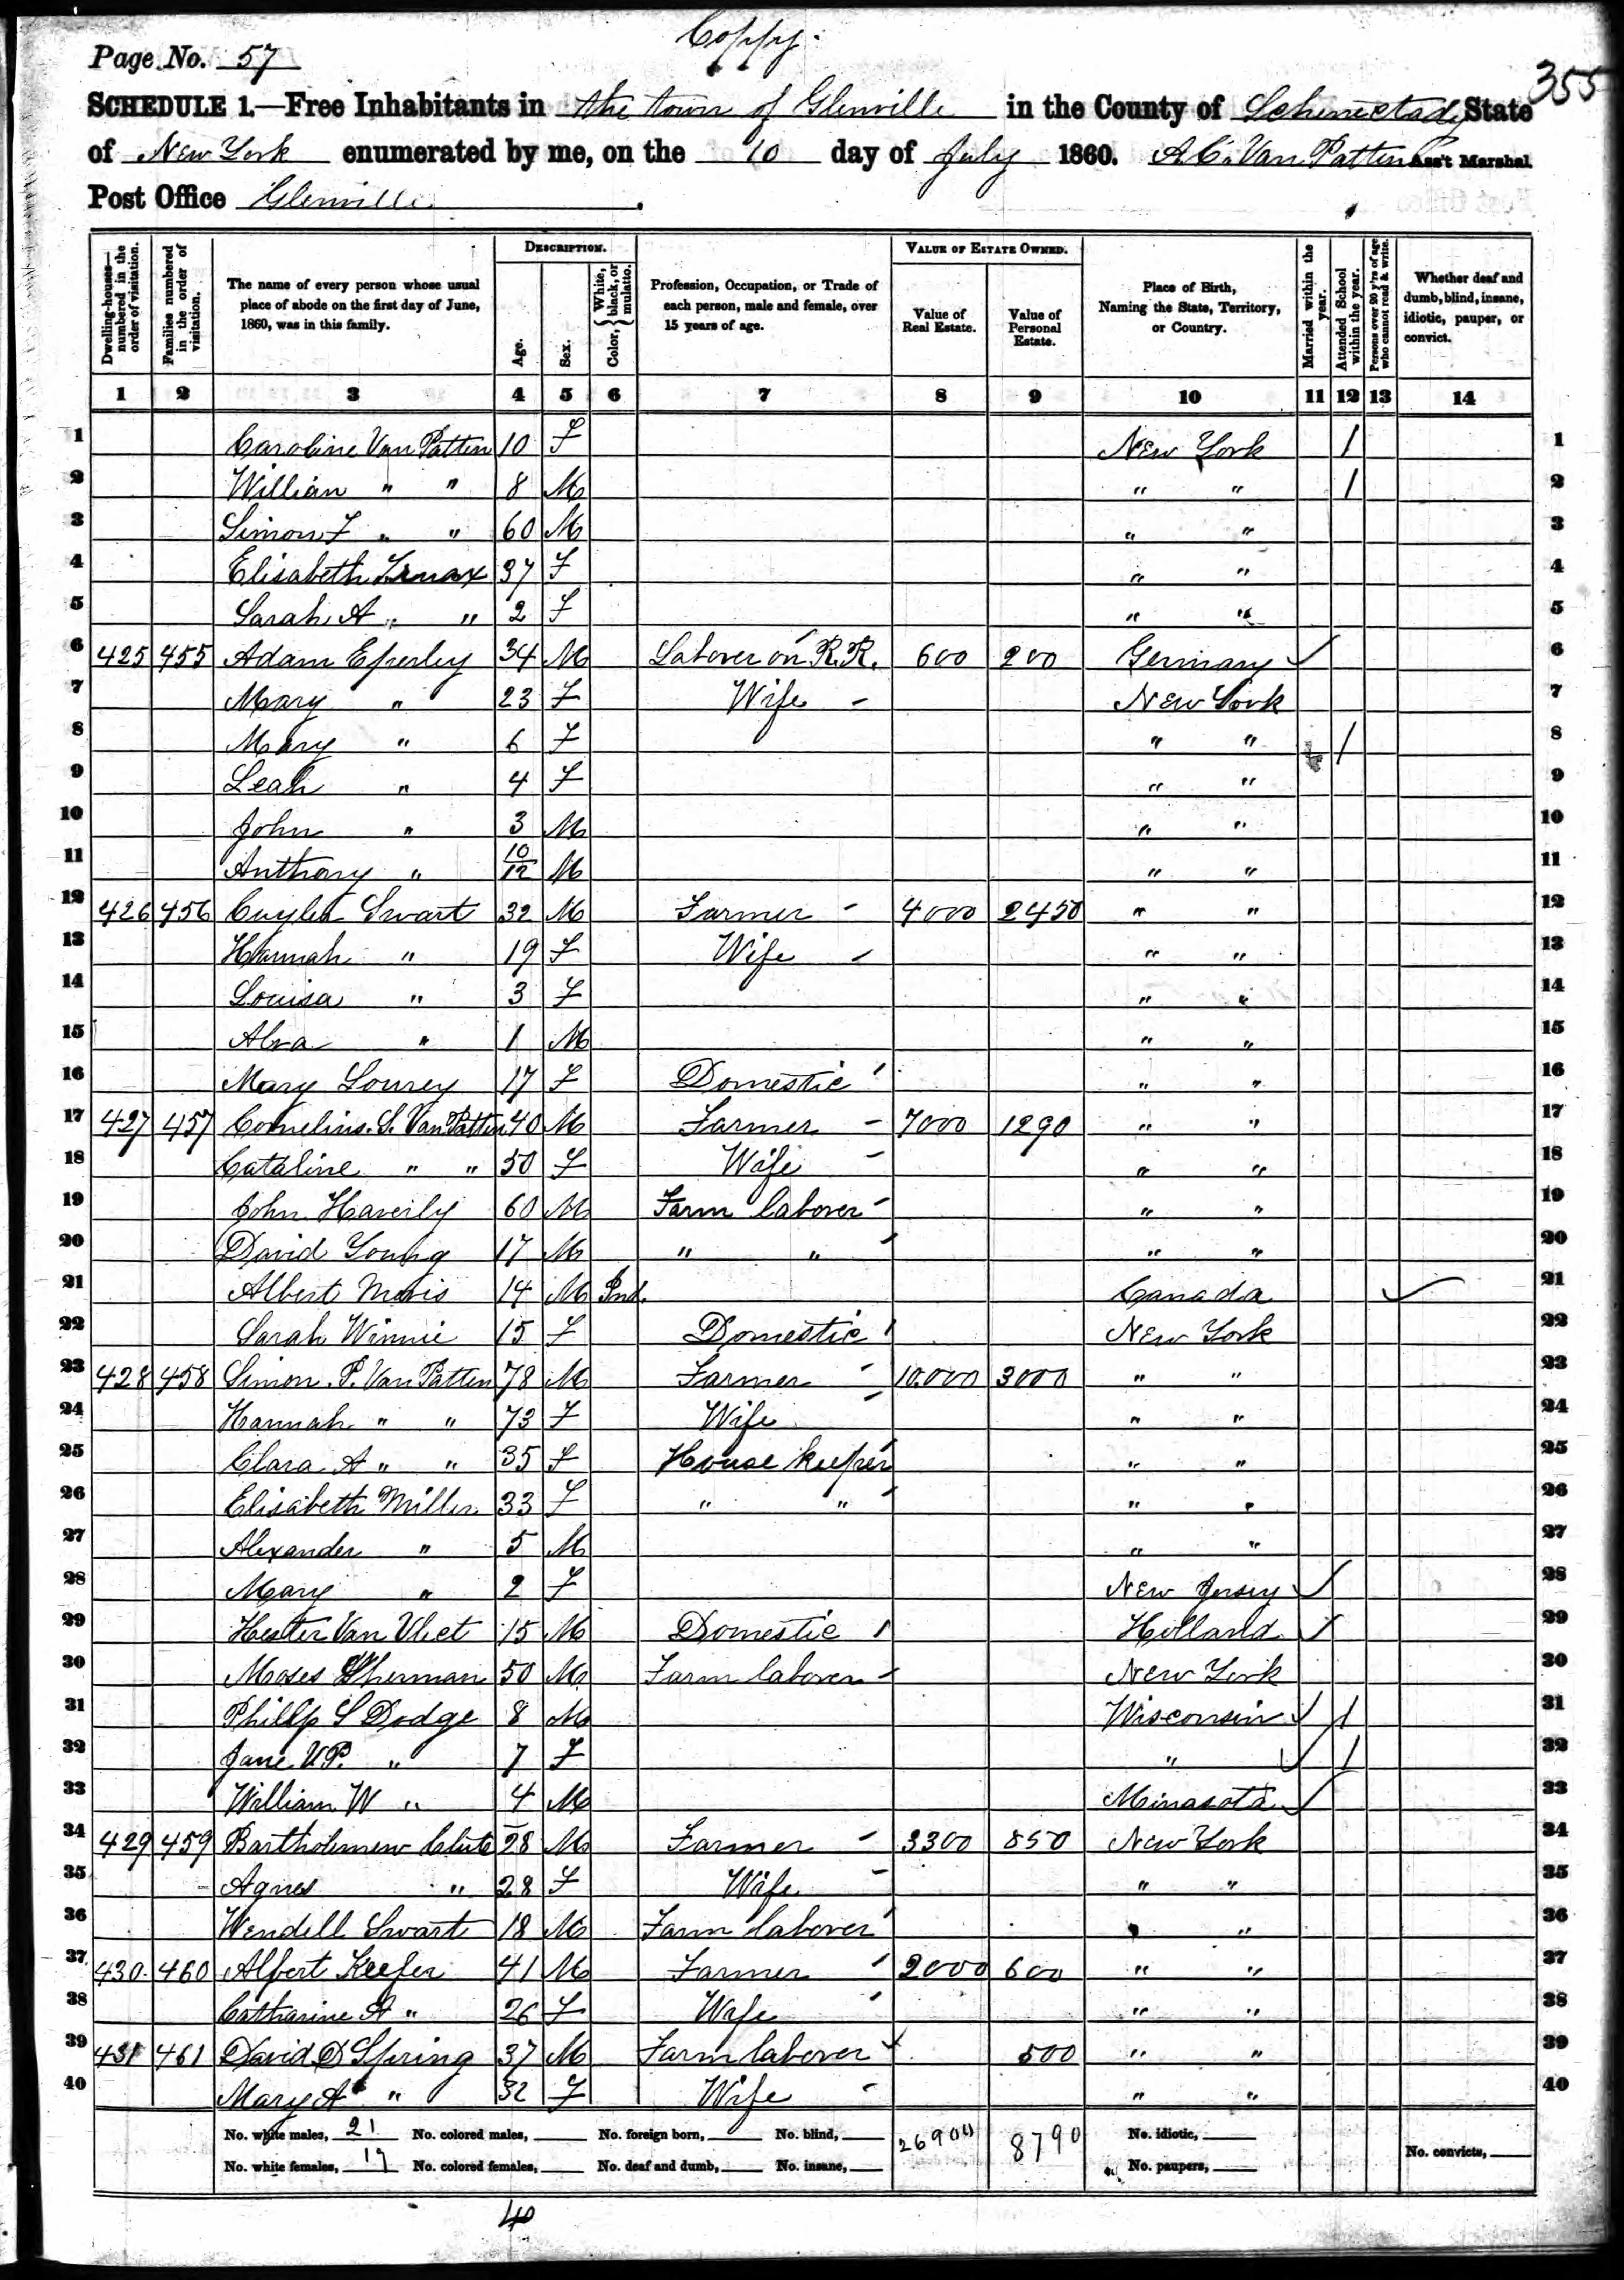 Coppy.
Page No. 57
355
SCHEDULE 1.—Free Inhabitants in the town of Glenville in the County of Schenectady State
of New York enumerated by me, on the 10 day of July 1860. A.C. Van Patten Ass't Marshal
Post Office Glenville.
Dwelling-houses—numbered in the order of visitation.
Families numbered in the order of visitation.
The name of every person whose usual place of abode on the first day of June, 1860, was in this family.
DESCRIPTION.
Age.
Sex.
Color, { White, black, or mulatto.
Profession, Occupation, or Trade of each person, male and female, over 15 years of age.
VALUE OF ESTATE OWNED.
Value of Real Estate.
Value of Personal Estate.
Place of Birth, Naming the State, Territory, or Country.
Married within the year.
Attended School within the year.
Persons over 20 y'rs of age who cannot read & write.
Whether deaf and dumb, blind, insane, idiotic, pauper, or convict.
1 2 3 4 5 6 7 8 9 10 11 12 13 14
1 Caroline Van Patten 10 F New York / 1
2 Willian " " 8 M " " / 2
3 Simon F " " 60 M " " 3
4 Elisabeth 37 F " " 4
5 Sarah A " " 2 F " " 5
6 425 455 Adam Esperley 34 M Labover on R.R. 600 200 Germany 6
7 Mary " 23 F Wife New York 7
8 Mary " 6 F " " / 8
9 Leah " 4 F " " 9
10 John " 3 M " " 10
11 Anthony " 10/12 M " " 11
12 426 456 Cuyler Swart 32 M Farmer 4000 2450 " " 12
13 Hannah " 19 F Wife " " 13
14 Louisa " 3 F " " 14
15 Alva " 1 M " " 15
16 Mary Lourey 17 F Domestic " " 16
17 427 457 Cornelius. S. Van Patten 40 M Farmer 7000 1290 " " 17
18 Cataline " " 50 F Wife " " 18
19 John Haverly 60 M Farm labover " " 19
20 David Young 17 M " " " " 20
21 Albert 14 M Ind. Canada 21
22 Sarah Winnie 15 F Domestic New York 22
23 428 458 Simon. P. Van Patten 78 M Farmer 10.000 3000 " " 23
24 Hannah " " 73 F Wife " " 24
25 Clara A " " 35 F House keeper " " 25
26 Elisabeth Miller 33 F " " " " 26
27 Alexander " 5 M " " 27
28 Mary " 2 F New Jersey 28
29 Hester Van Vliet 15 M Domestic Holland 29
30 Moses Sherman 50 M Farm labover New York 30
31 Phillp S Dodge 8 M Wisconsin / 31
32 Jane V.P. " 7 F " / 32
33 William W " 4 M Minasota 33
34 429 459 Bartholemew Clute 28 M Farmer 3300 850 New York 34
35 Agnes " 28 F Wife " " 35
36 Wendell Swart 18 M Farm labover " " 36
37 430. 460 Albert Keefer 41 M Farmer 2000 600 " " 37
38 Catharine A " 26 F Wife " " 38
39 431 461 David D Spring 37 M Farm labover 500 " " 39
40 Mary A " 32 F Wife " " 40
No. white males, 21 No. colored males, No. foreign born, No. blind, 26900 8790 No. idiotic,
No. white females, 19 No. colored females, No. deaf and dumb, No. insane, No. paupers, No. convicts,
40